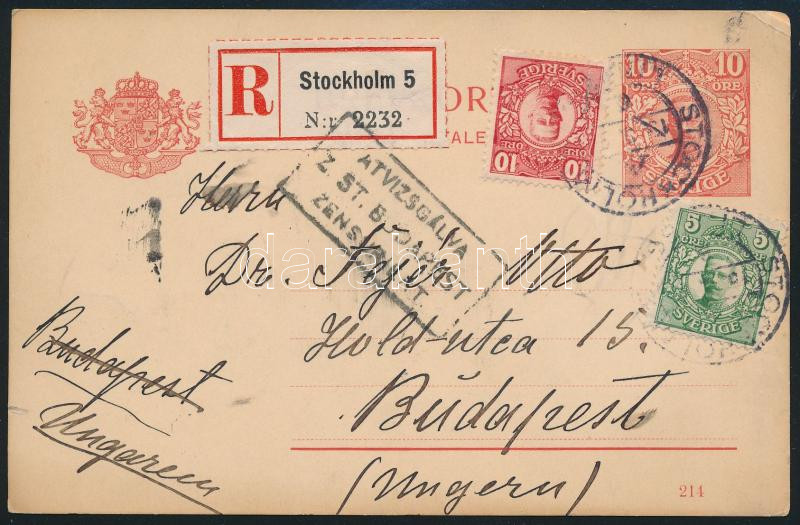 R
Stockholm 5
N:r 2232
10 10
ÖRE
SVERIGE
10 10
SVERIGE
ÁTVIZSGÁLVA
Z. ST. BUDAPEST
ZENSURIERT.
Herrn
Dr. Fejér Otto
Hold-utca 15.
Budapest
(Ungern)
Budapest
Ungaren
5 5
ÖRE ÖRE
SVERIGE
STOCKHOLM
darabanth
214